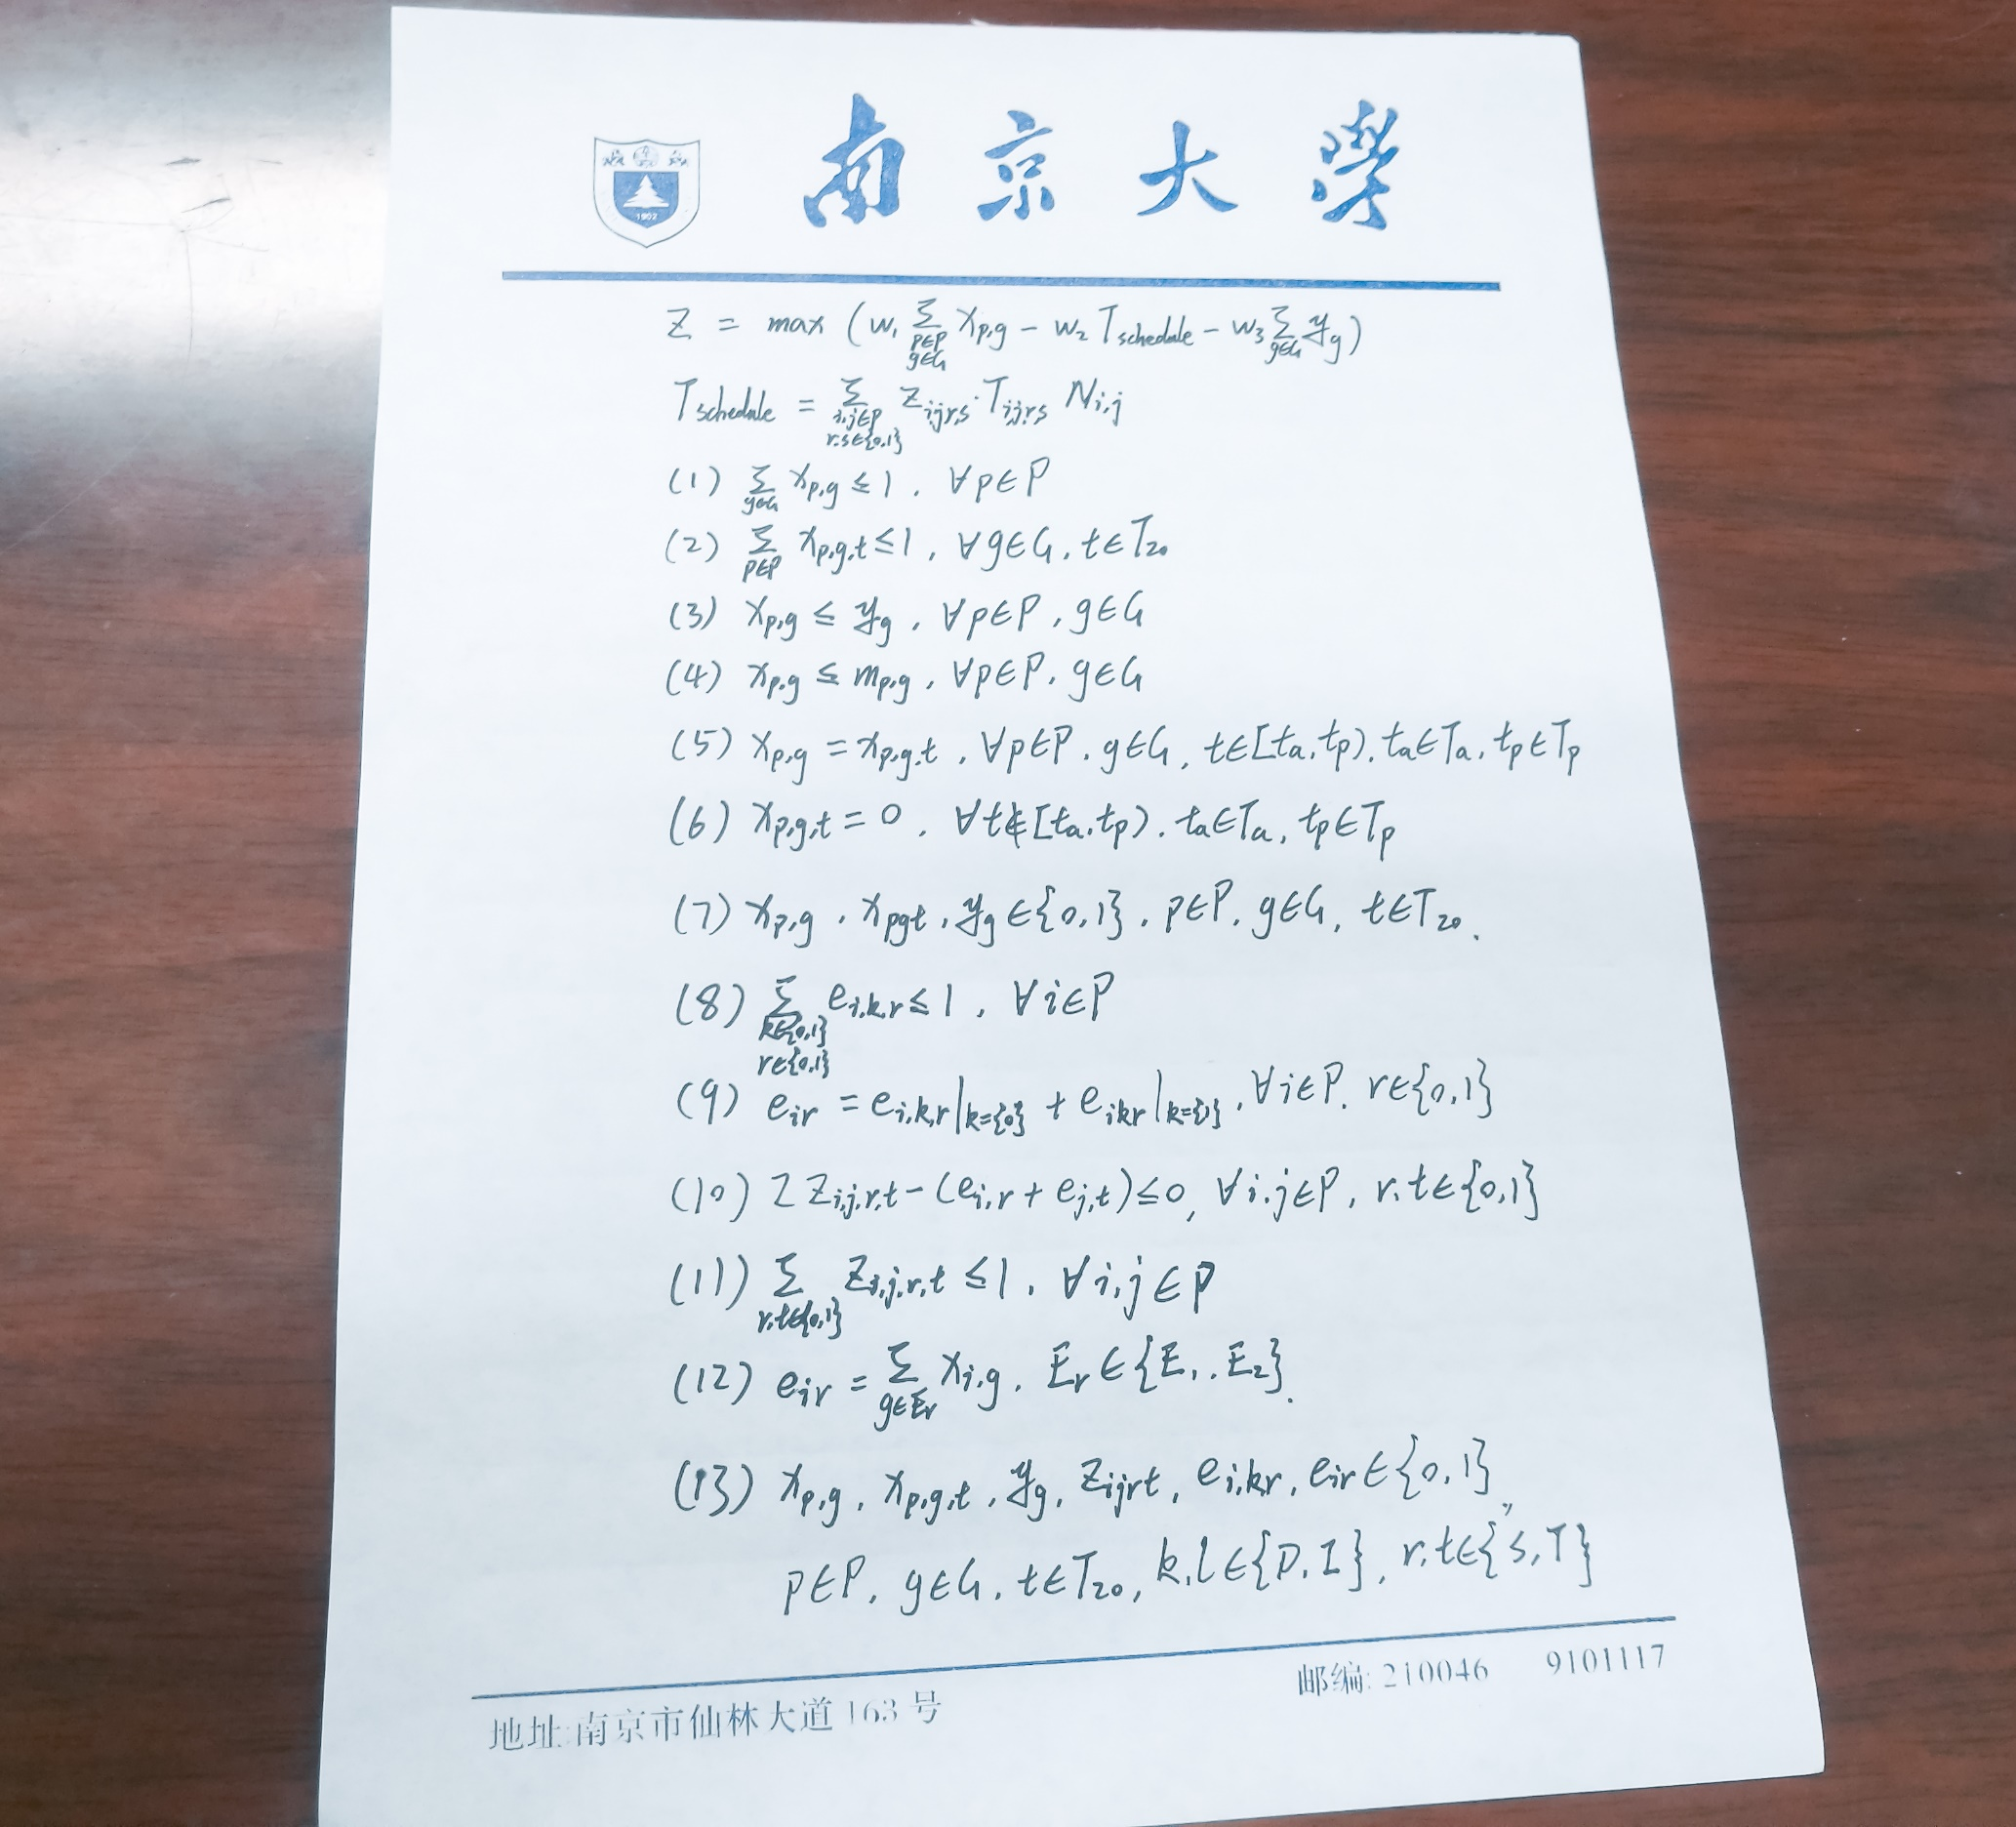 1902
南京大學
Z = max (w₁ Σ_{p∈P, g∈G} x_{p,g} − w₂ T_{schedule} − w₃ Σ_{g∈G} y_g)
T_{schedule} = Σ_{i,j∈P, r,s∈{0,1}} z_{ijrs} · T_{ijrs} N_{i,j}
(1) Σ_{g∈G} x_{p,g} ≤ 1, ∀p∈P
(2) Σ_{p∈P} x_{p,g,t} ≤ 1, ∀g∈G, t∈T₂₀
(3) x_{p,g} ≤ y_g, ∀p∈P, g∈G
(4) x_{p,g} ≤ m_{p,g}, ∀p∈P, g∈G
(5) x_{p,g} = x_{p,g,t}, ∀p∈P, g∈G, t∈[t_a, t_p), t_a∈T_a, t_p∈T_p
(6) x_{p,g,t} = 0, ∀t∉[t_a, t_p), t_a∈T_a, t_p∈T_p
(7) x_{p,g}, x_{pgt}, y_g∈{0,1}, p∈P, g∈G, t∈T₂₀.
(8) Σ_{k∈{0,1}, r∈{0,1}} e_{i,k,r} ≤ 1, ∀i∈P
(9) e_{ir} = e_{i,k,r}|_{k={0}} + e_{ikr}|_{k={1}}, ∀i∈P, r∈{0,1}
(10) 2 z_{i,j,r,t} − (e_{i,r} + e_{j,t}) ≤ 0, ∀i,j∈P, r,t∈{0,1}
(11) Σ_{r,t∈{0,1}} z_{i,j,r,t} ≤ 1, ∀i,j∈P
(12) e_{ir} = Σ_{g∈E_r} x_{i,g}, E_r∈{E₁, E₂}.
(13) x_{p,g}, x_{p,g,t}, y_g, z_{ijrt}, e_{i,k,r}, e_{ir}∈{0,1},
p∈P, g∈G, t∈T₂₀, k,l∈{D,I}, r,t∈{S,T}
邮编: 210046 9101117
地址:南京市仙林大道163号